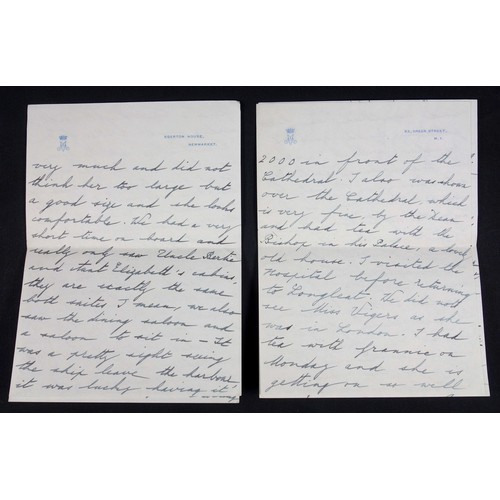 KEEPTON HOUSE,
NEWMARKET.
very much and did not
think her too large but
a good size and she looks
comfortable. We had a very
short time on board and
really only saw Uncle Bertie
and that Elizabeth's cabins,
they are exactly the same
both suites, I mean, we also
saw the dining saloon and
a saloon to sit in - It
was a pretty sight seeing
the ship leave the harbour
it was lucky having it
STREET,
W.1.
2000 in front of the
Cathedral. I also was shown
over the Cathedral which
is very fine, by the Dean
and had tea with the
Bishop in his Palace, a lovely
old house. I visited the
Hospital before returning
to Longleat. We did not
see Miss Vigers as she
was in London. I had
tea with Grannie on
Monday and she is
getting on so well